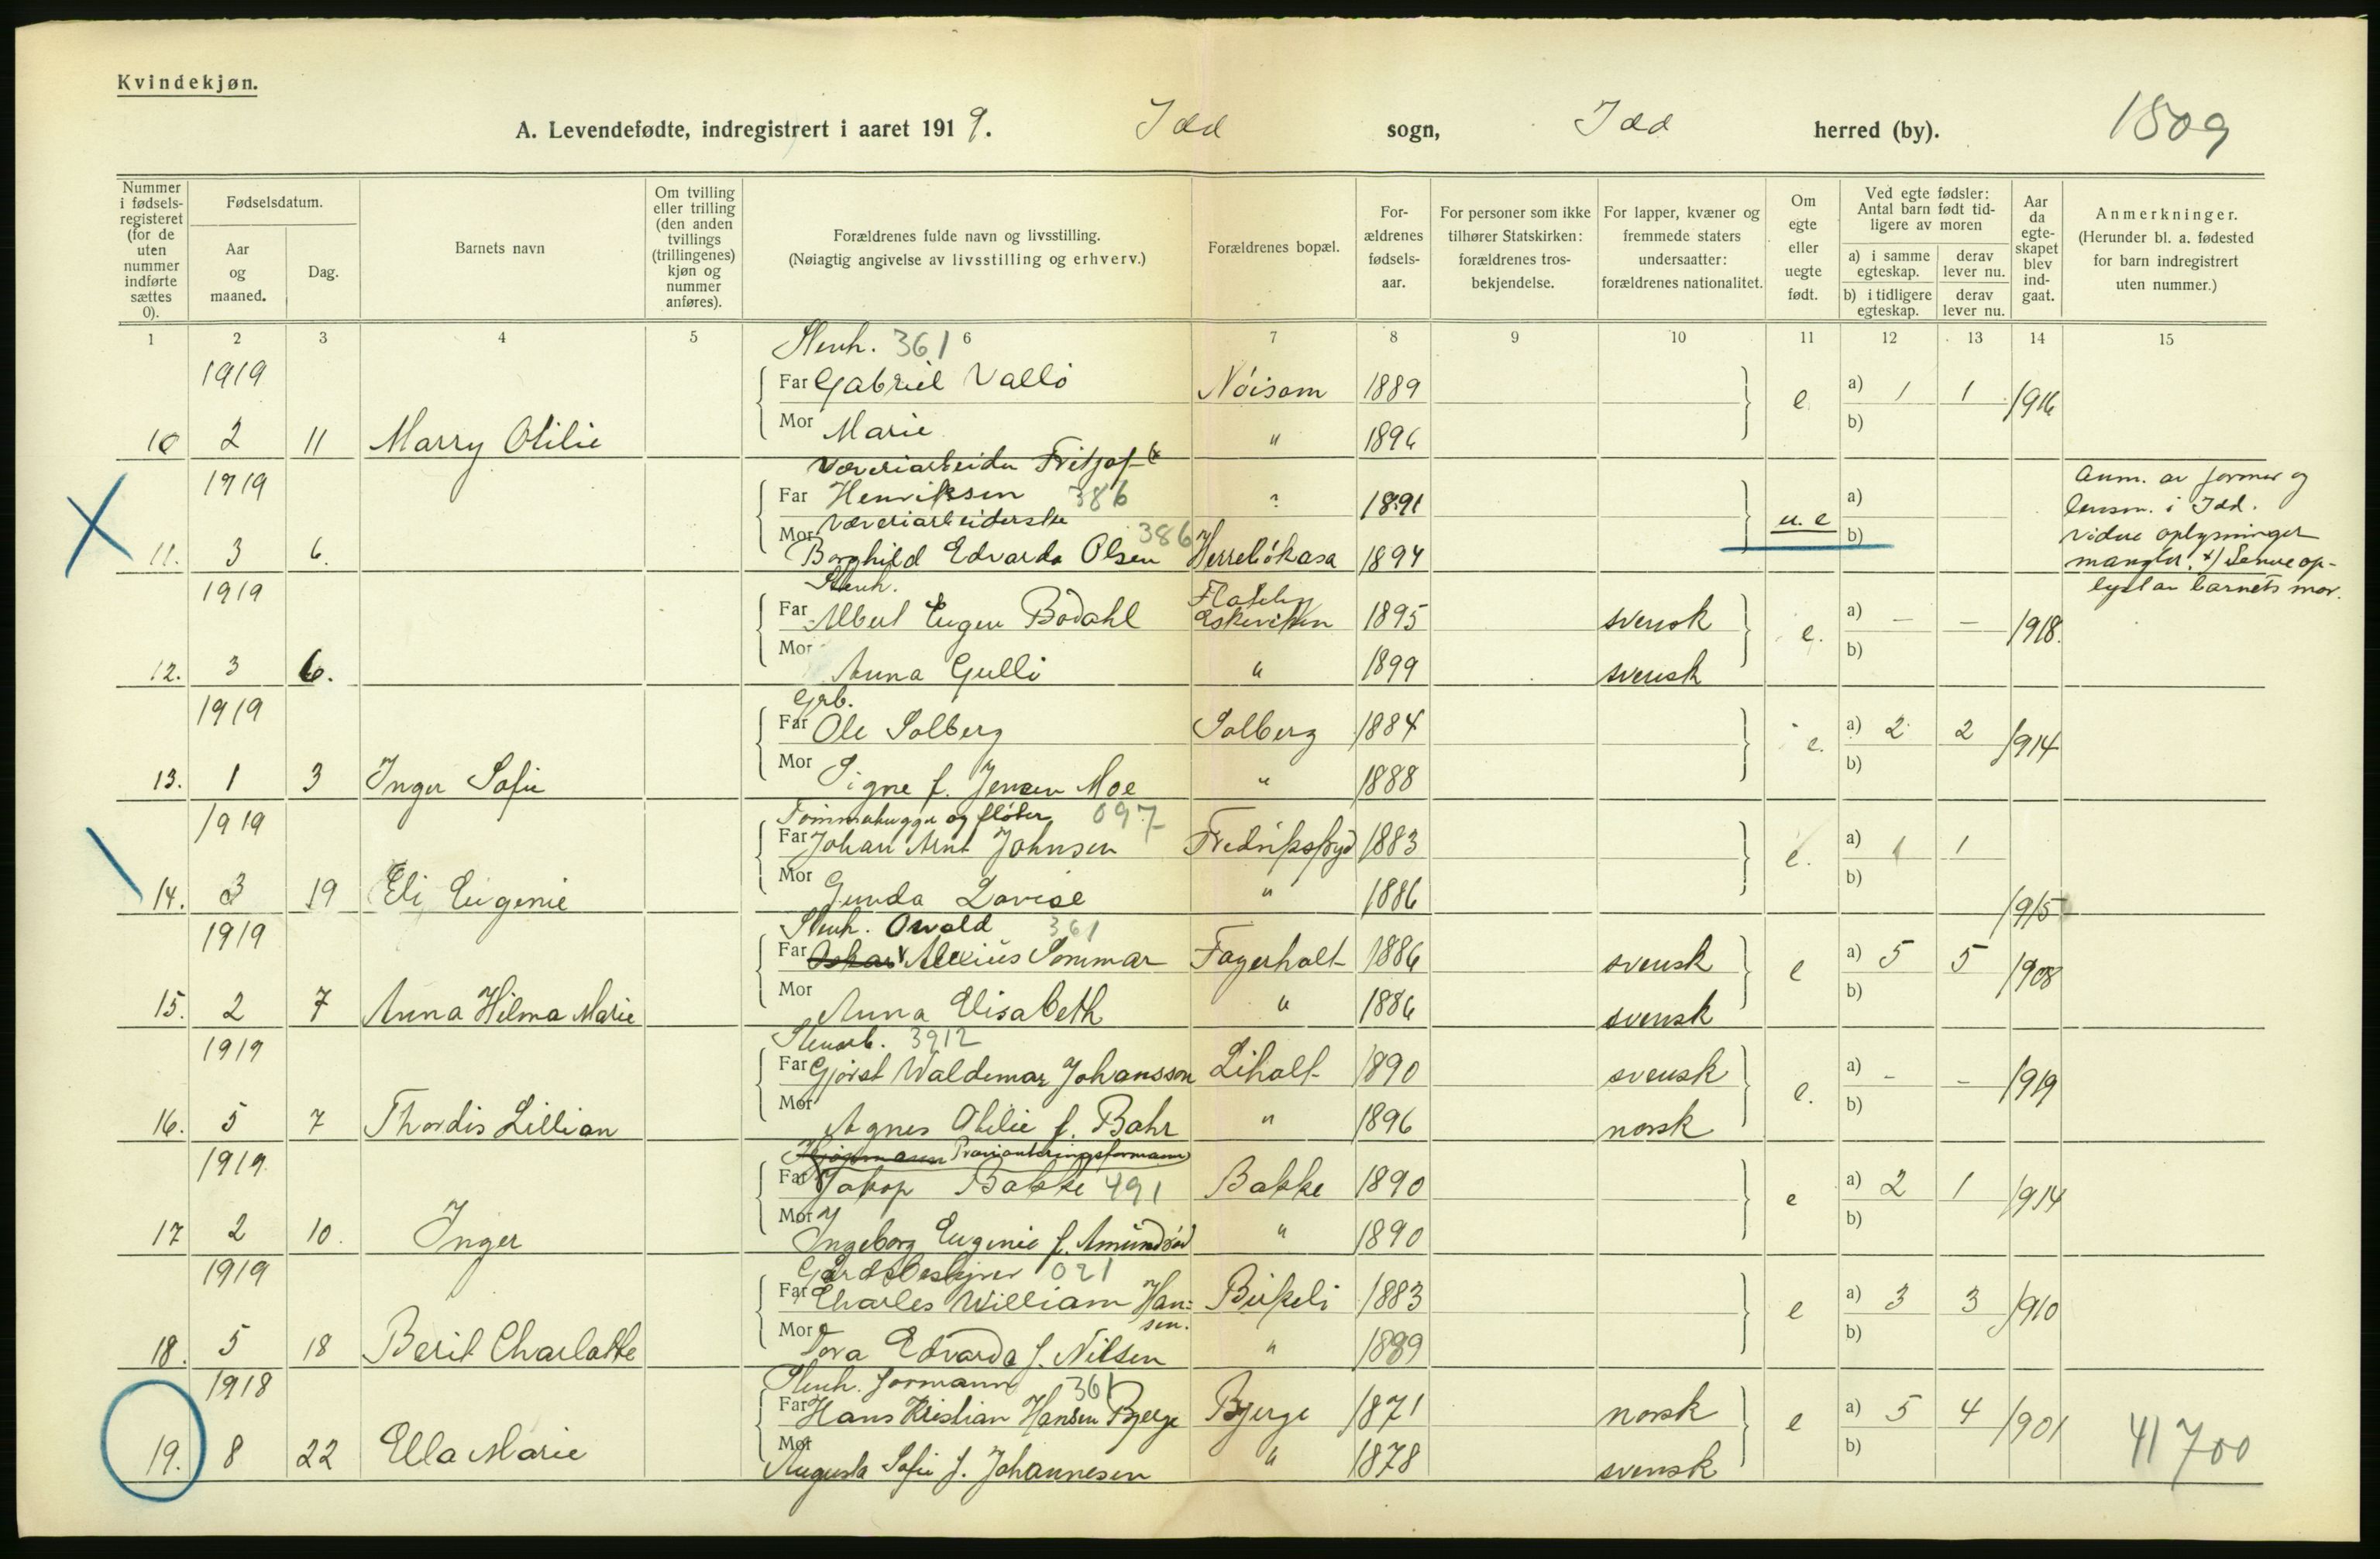 Kvindekjøn.
A. Levendefødte, indregistrert i aaret 1919. Idd sogn, Idd herred (by). 1509
Nummer i fødsels-registeret (for de uten nummer indførte sættes 0).
Fødselsdatum.
Aar og maaned.
Dag.
Barnets navn
Om tvilling eller trilling (den anden tvillings (trillingenes) kjøn og nummer anføres).
Forældrenes fulde navn og livsstilling.
(Nøiagtig angivelse av livsstilling og erhverv.)
Forældrenes bopæl.
For-ældrenes fødsels-aar.
For personer som ikke tilhører Statskirken: forældrenes tros-bekjendelse.
For lapper, kvæner og fremmede staters undersaatter: forældrenes nationalitet.
Om egte eller uegte født.
Ved egte fødsler: Antal barn født tid-ligere av moren
a) i samme egteskap. derav lever nu.
b) i tidligere egteskap. derav lever nu.
Aar da egte-skapet blev ind-gaat.
Anmerkninger.
(Herunder bl. a. fødested for barn indregistrert uten nummer.)
1 2 3 4 5 6 7 8 9 10 11 12 13 14 15
Stenh. 361
1919 Far Gabriel Vallö Nöisom 1889 e. a) 1 1 1916
10 2 11 Marry Otilie Mor Marie " 1896 b)
Væveriarbeider Fritjof x
1919 Far Henriksen 386 ? 1891 a)
Væveriarbeiderske 386
11. 3 6. Mor Borghild Edvarda Olsen Herrebökasa 1894 u. e b)
Anm. av former og
lensm. i Idd.
Videre oplysninger
mangler. x) Senere op-
lyst av barnets mor.
Stenh. Flateby
1919 Far Albert Eugen Bodahl Eskeviken 1895 svensk e. a) – – 1918.
12. 3 6. Mor Anna Gulli " 1899 svensk b)
Grb.
1919 Far Ole Solberg Solberg 1884 e. a) 2 2 1914
13. 1 3 Inger Sofie Mor Signe f. Jensen Moe " 1888 b)
Tømmerhugger og fløter 097
1919 Far Johan Arnt Johnsen Fredriksfryd 1883 e. a) 1 1
14. 3 19 Eli Eugenie Mor Gunda Lovise " 1886 b) 1915
Stenh. Osvald 361
1919 Far Oskar Alexius Sommar Fagerholt 1886 svensk e a) 5 5 1908
15. 2 7 Anna Hilma Marie Mor Anna Elisabeth " 1886 svensk b)
Stenarb. 3912
1919 Far Gjörst Waldemar Johansson Liholt 1890 svensk e. a) - - 1919
16. 5 7 Thordis Lillian Mor Agnes Otilie f. Bahr " 1896 norsk b)
Provianteringsformann
1919 Far Jakop Bakke 491 Bakke 1890 e a) 2 1 1914
17 2 10. Inger Mor Ingeborg Eugenie f. Amundröd " 1890 b)
Gårdsbestyrer 021
1919 Far Charles William Han= Birkeli 1883 e a) 3 3 1910
sen.
18. 5 18 Berit Charlotte Mor Tora Edvarda f. Nilsen " 1889 b)
Stenh. formann 361
1918 Far Hans Kristian Hansen Bjerge Bjerge 1871 norsk e a) 5 4 1901
19. 8 22 Ella Marie Mor Augusta Sofie f. Johannesen " 1878 svensk b) 41700